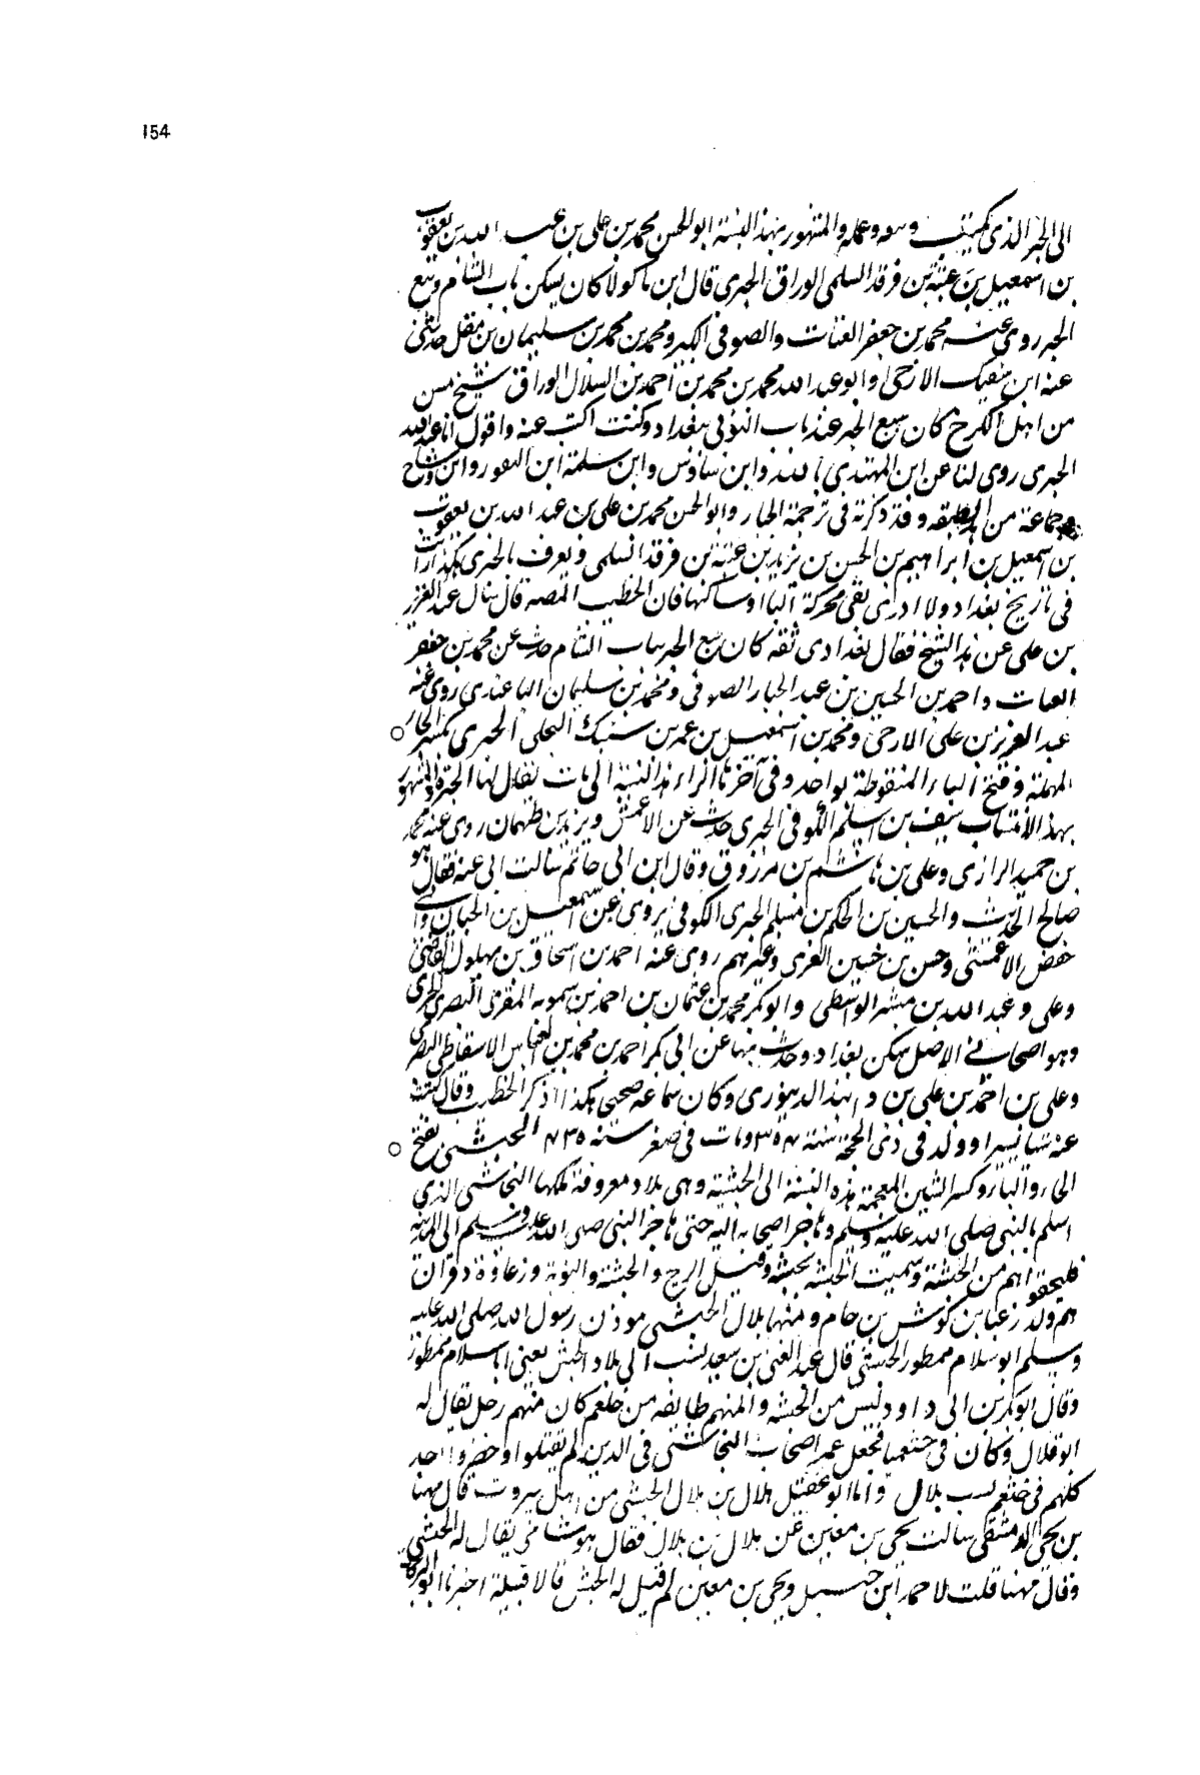 154
الى الحبر الذى يكتب به وعمله والمشهور بهذه النسبة ابو الحسن محمد بن على بن عبد الله بن يعقوب
بن اسمعيل بن عتبة بن فرقد السلمى الوراق الحبرى قال ابن ماكولا كان يسكن باب الشام ويبيع
الحبر روى عنه محمد بن جعفر القتات والصوفى الكبير ومحمد بن محمد بن سليمان بن
عنه ابن الازجى وابو عبد الله محمد بن محمد بن احمد بن السلال الوراق شيخ مسن
من اهل الكرخ كان يبيع الحبر عند باب النوبى ببغداد وكنت اكتب عنه واقول انا عبد الله
الحبرى روى لنا عن ابن المهتدى بالله وابن وابن سلمة ابن النقور وابن وشاح
وجماعة من الطبقه وقد ذكرته فى ترجمة الحبار وابو الحسن محمد بن على بن عبد الله بن يعقوب
بن اسمعيل بن ابراهيم بن الحسن بن يزيد بن عتبة بن فرقد السلمى ويعرف بالحبرى هكذا رايت
فى تاريخ بغداد ولا ادرى بقى محركة البا او ساكنها فان الخطيب قال سال عبد العزيز
بن على عن هذا الشيخ فقال بغدادى ثقه كان يبيع الحبر بباب الشام حدث عن محمد بن جعفر
القتات واحمد بن الحسين بن عبد الجبار الصوفى ومحمد بن سليمان الباغندى روى عنه
عبد العزيز بن على الازجى ومحمد بن اسمعيل بن عمر بن سبنك البجلى الحبرى بكسر الحاء
المهملة وفتح الباء المنقوطة بواحد وفى آخرها الراء هذه النسبة الى ثياب يقال لها الحبرة والمشهور
بهذا الانتساب سيف بن اسلم الكوفى الحبرى حدث عن الاعمش ويزيد بن طهمان روى عنه محمد
بن حميد الرازى وعلى بن هاشم بن مرزوق وقال ابن ابى حاتم سالت ابى عنه فقال هو
صالح الحديث والحسين بن الحكم بن مسلم الحبرى الكوفى يروى عن اسمعيل بن ابان وابى
حفص الاعمش وحسن بن حسين العرنى وغيرهم روى عنه احمد بن اسحاق بن بهلول القاضى
وعلى وعبد الله بن مبشر الواسطى وابو بكر محمد بن عثمان بن احمد بن سمويه المقرى البصرى الحبرى
وهو اصبهانى الاصل سكن بغداد وحدث بها عن ابى بكر احمد بن محمد بن العباس الاسفاطى البصرى
وعلى بن احمد بن على بن الدينورى وكان سماعه صحيحا هكذا ذكر الخطيب وقال كتبت
عنه شيا يسيرا وولد فى ذى الحجة سنة ٣٥٧ ومات فى صفر سنة ٤٣٥ الحبشى بفتح
الحاء والباء وكسر الشين المعجمة هذه النسبة الى الحبشة وهى بلاد معروفة ملكها النجاشى الذى
اسلم بالنبى صلى الله عليه وسلم وهاجر اصحابه اليه حتى هاجر النبى صلى الله عليه وسلم الى المدينة
فلحقوا بهم من الحبشة وسميت الحبشة بحبشة وقيل الزنج والحبشة والنوبة وزغاوة وقران
هم ولد زغيا بن كوش بن حام ومنها بلال الحبشى موذن رسول الله صلى الله عليه
وسلم ابو سلام ممطور الحبشى قال عبد الغنى بن سعيد نسب الى بلاد الحبش يعنى ابا سلام ممطور
وقال ابو بكر بن ابى داود ليس من الحبشه وانهم طايفه من خثعم كان منهم رجل يقال له
ابو قلال وكان فى خثعم فجعل عمر اصحاب النجاشى فى الذين لم يقتلوا وحضروا احد
كلهم فى خثعم بسبب بلال واما ابو عقيل هلال بن بلال الحبشى من اهل بيروت قال مهنا
بن يحيى الدمشقى سالت يحيى بن معين عن هلال بن بلال فقال هو شامى يقال له الحبشى
وقال مهنا قلت لاحمد ابن حنبل ويحيى بن معين لم قيل له الحبش قالا قبيلة اخبرنا ابو البركات